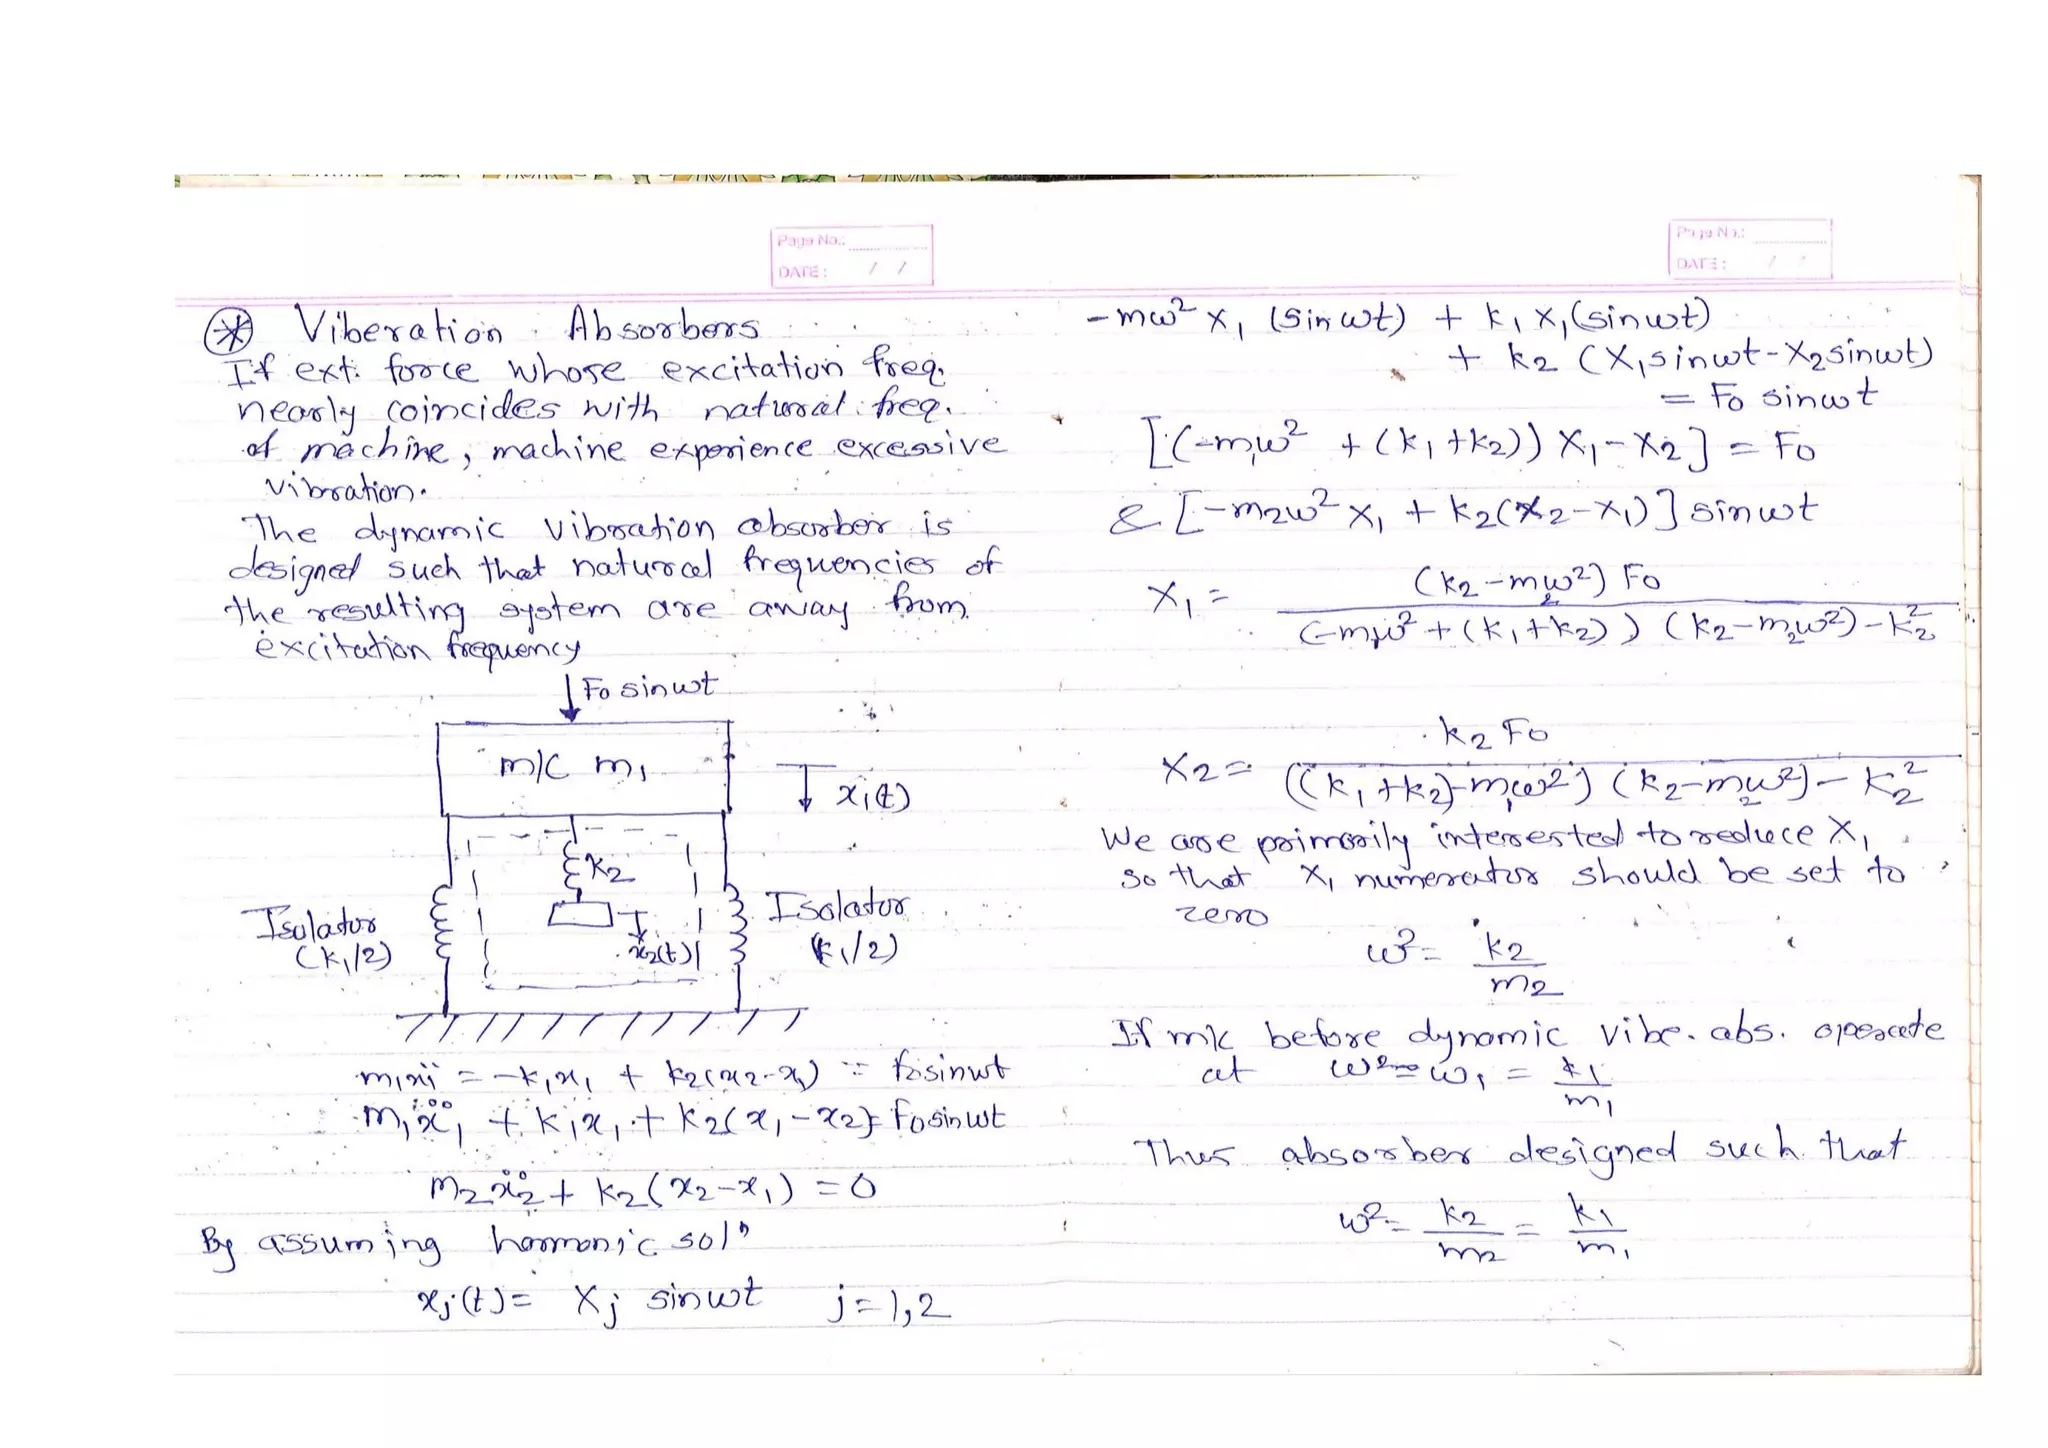 Page No.:
DATE: / /
⊛ Viberation Absorbers
If ext. force whose excitation freq.
nearly coincides with natural freq.
of machine, machine experience excessive
vibration.
The dynamic vibration absorber is
designed such that natural frequencies of
the resulting system are away from
excitation frequency
F₀ sinωt
m/c m₁
x₁(t)
k₂
Isolator
(k₁/2)
x₂(t)
Isolator
(k₁/2)
m₁ẍ₁ = -k₁x₁ + k₂(x₂-x₁) = F₀sinωt
m₁ẍ₁ + k₁x₁ + k₂(x₁-x₂) = F₀sinωt
m₂ẍ₂ + k₂(x₂-x₁) = 0
By assuming harmonic solⁿ
xⱼ(t) = Xⱼ sinωt j=1,2
Page No.:
DATE: / /
-mω² X₁ (sinωt) + k₁ X₁(sinωt)
+ k₂ (X₁sinωt-X₂sinωt)
= F₀ sinωt
[(-m₁ω² + (k₁+k₂)) X₁-X₂] = F₀
& [-m₂ω² X₁ + k₂(X₂-X₁)] sinωt
X₁ = (k₂-m₂ω²) F₀
(-m₁ω² + (k₁+k₂)) (k₂-m₂ω²)-k₂²
X₂ = k₂ F₀
((k₁+k₂)-m₁ω²) (k₂-m₂ω²)-k₂²
We are primarily interested to reduce X₁
so that X₁ numerator should be set to
zero
ω² = k₂
m₂
If m/c before dynamic vibr. abs. operate
at ω² = ω₁ = k₁
m₁
Thus absorber designed such that
ω² = k₂/m₂ = k₁/m₁